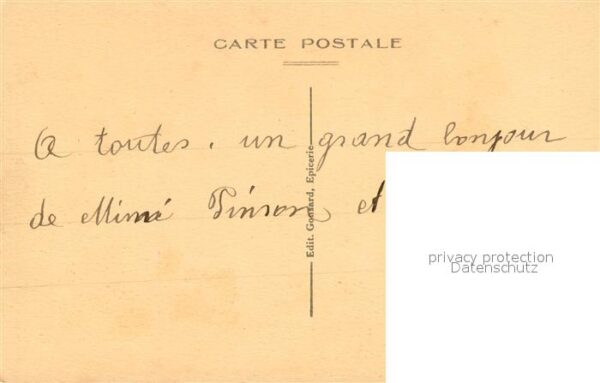 CARTE POSTALE
A toutes. un grand bonjour
de Mimi Pinson et
Edit. Gonsard, Epicerie
privacy protection
Datenschutz